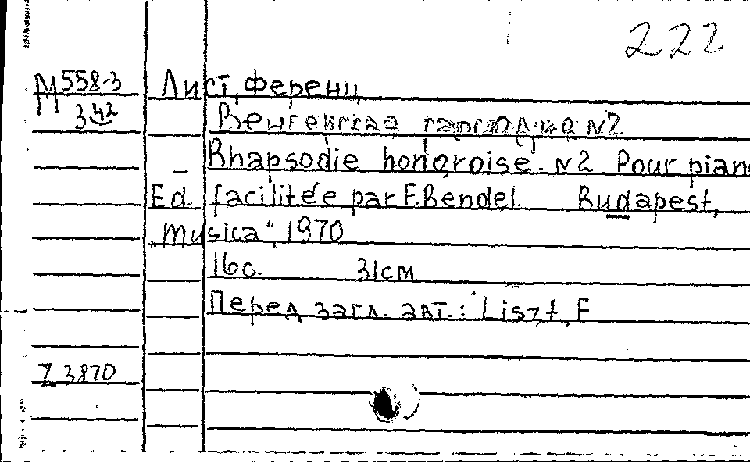 222
М 558-3 Лист, Ференц
3 42
Венгерская рапсодия N2
Rhapsodie hongroise. N2 Pour pian
Ed. facilitée par F. Bendel Budapest,
"Musica", 1970
16с. 31см
Перед загл. авт.: Liszt, F
Z 3870